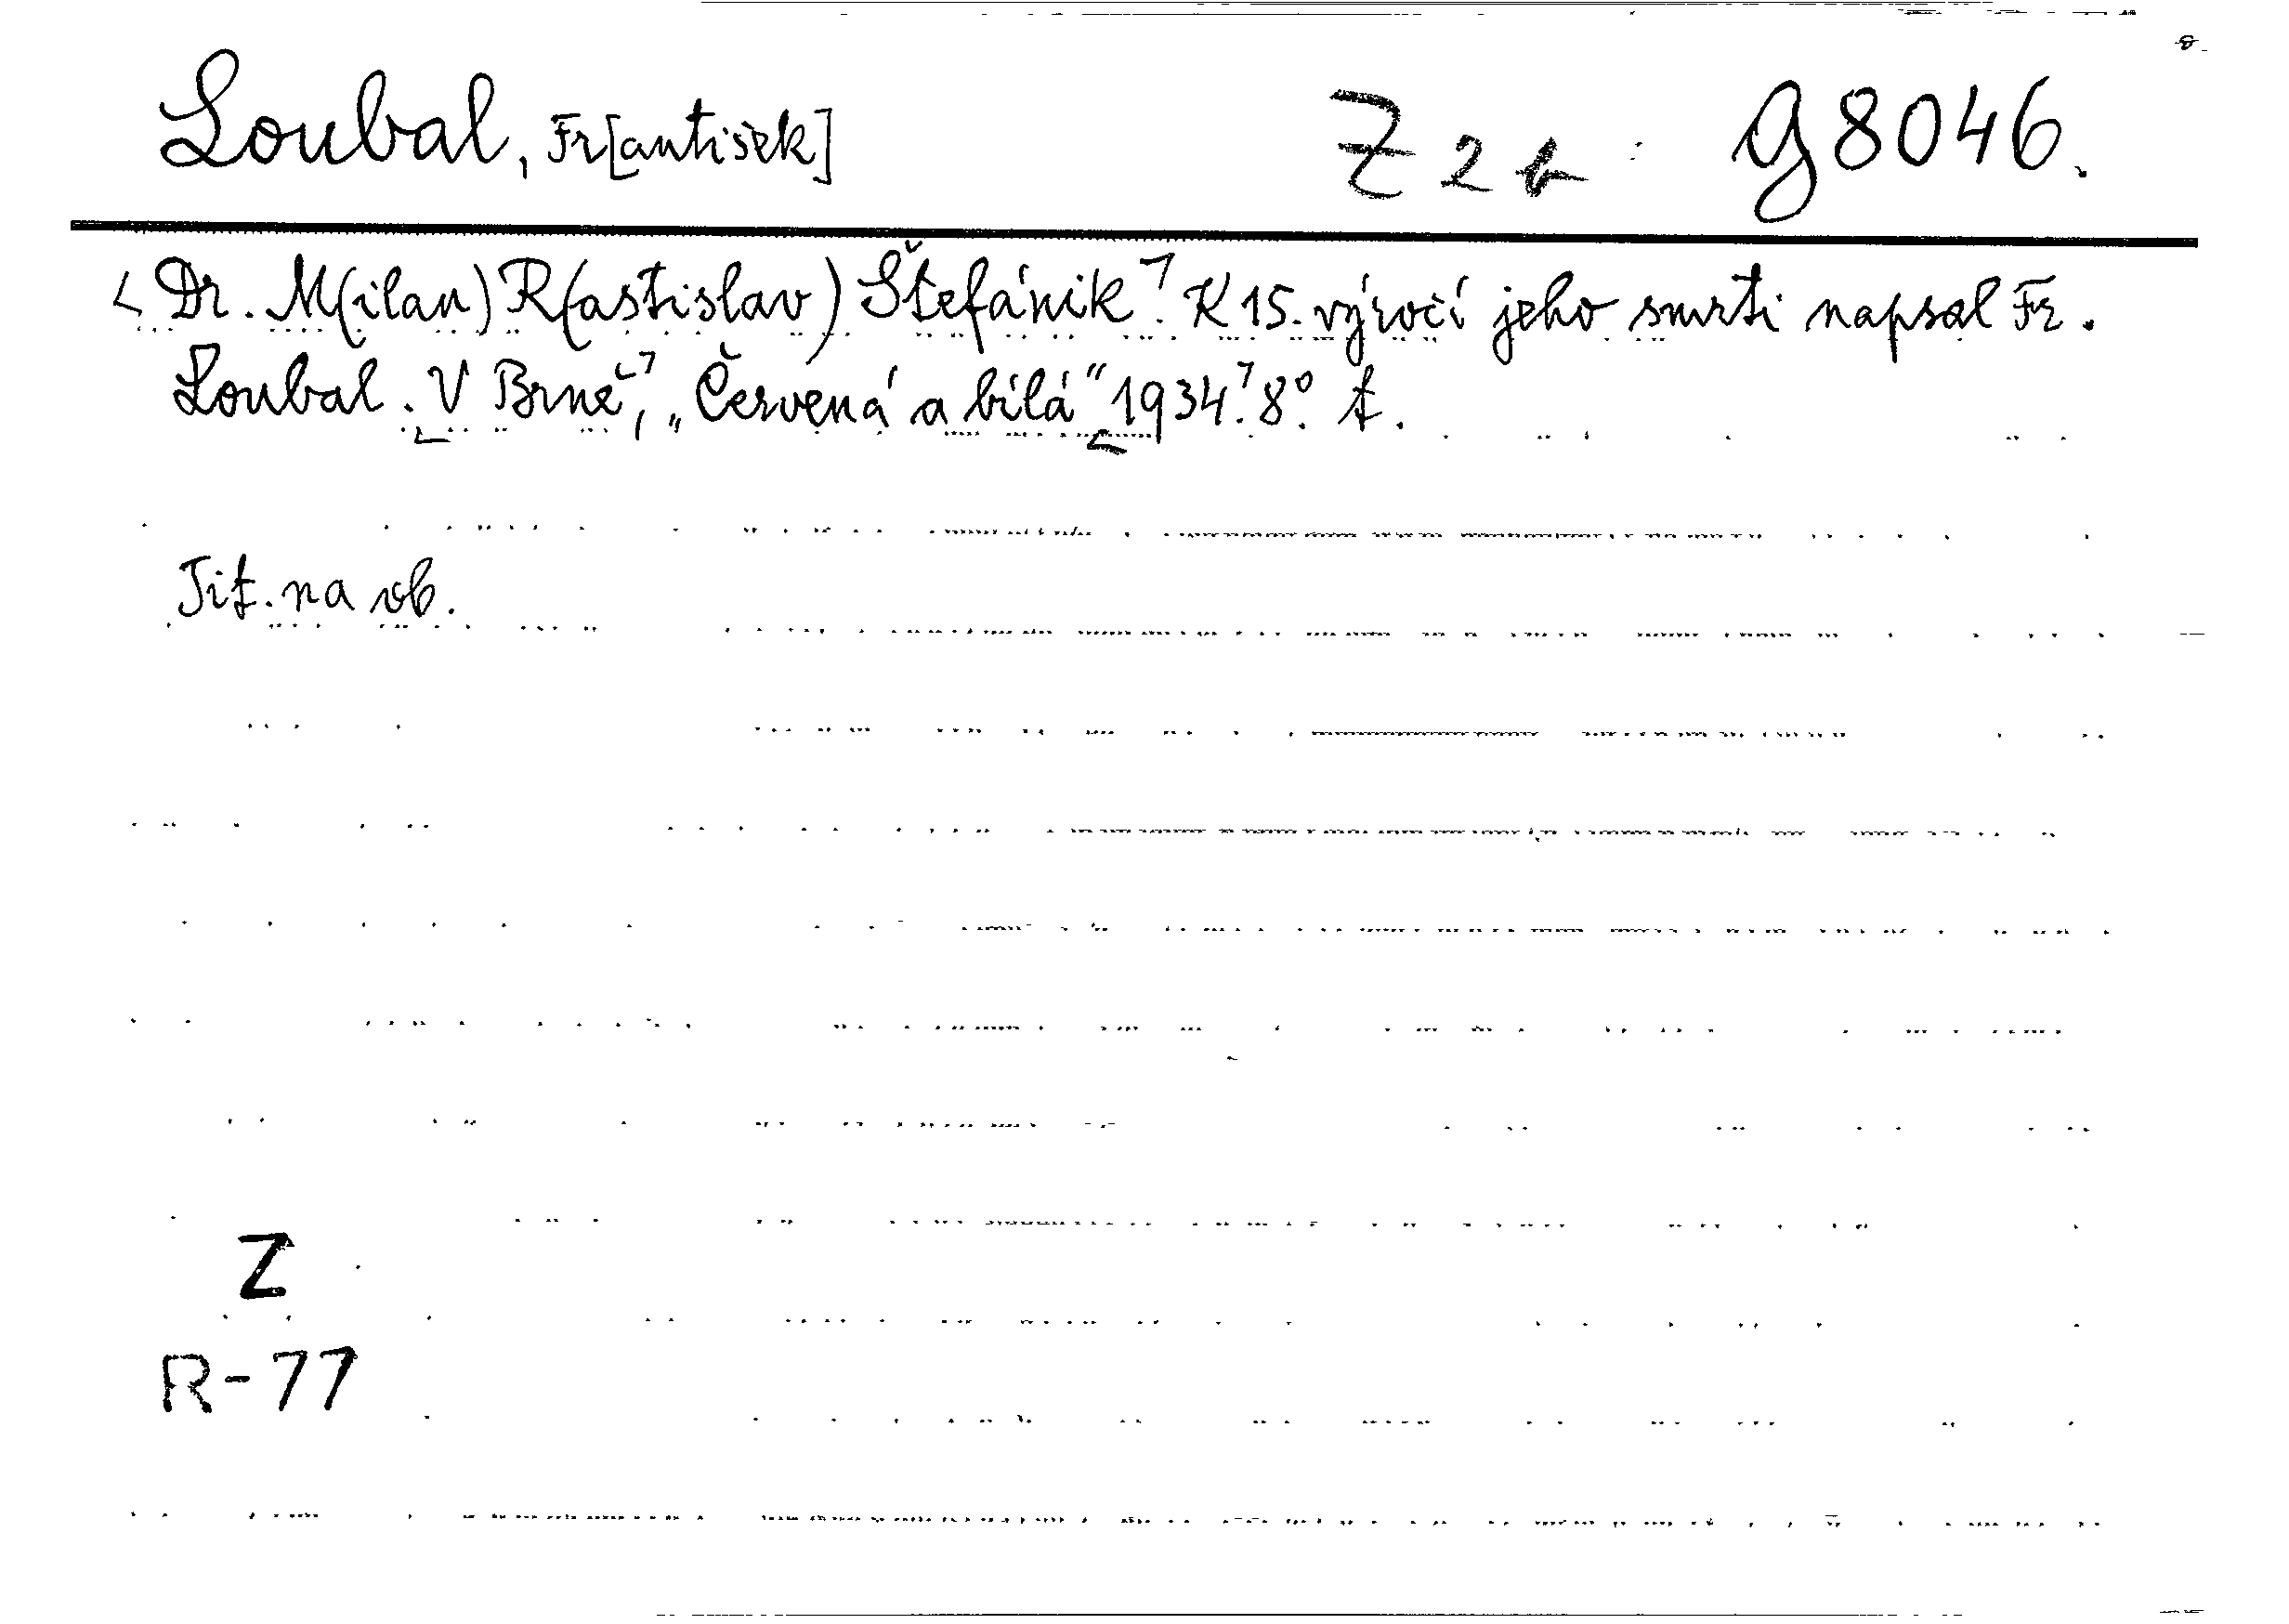 Loubal, Fr[antišek] Z 2 b g 8046.
< Dr. M(ilan) R(astislav) Štefánik ⁊. K 15. výročí jeho smrti napsal Fr.
Loubal. V Brně, „Červená a bílá“ 1934. 8°. t.
Tit. na ob.
Z
R-77